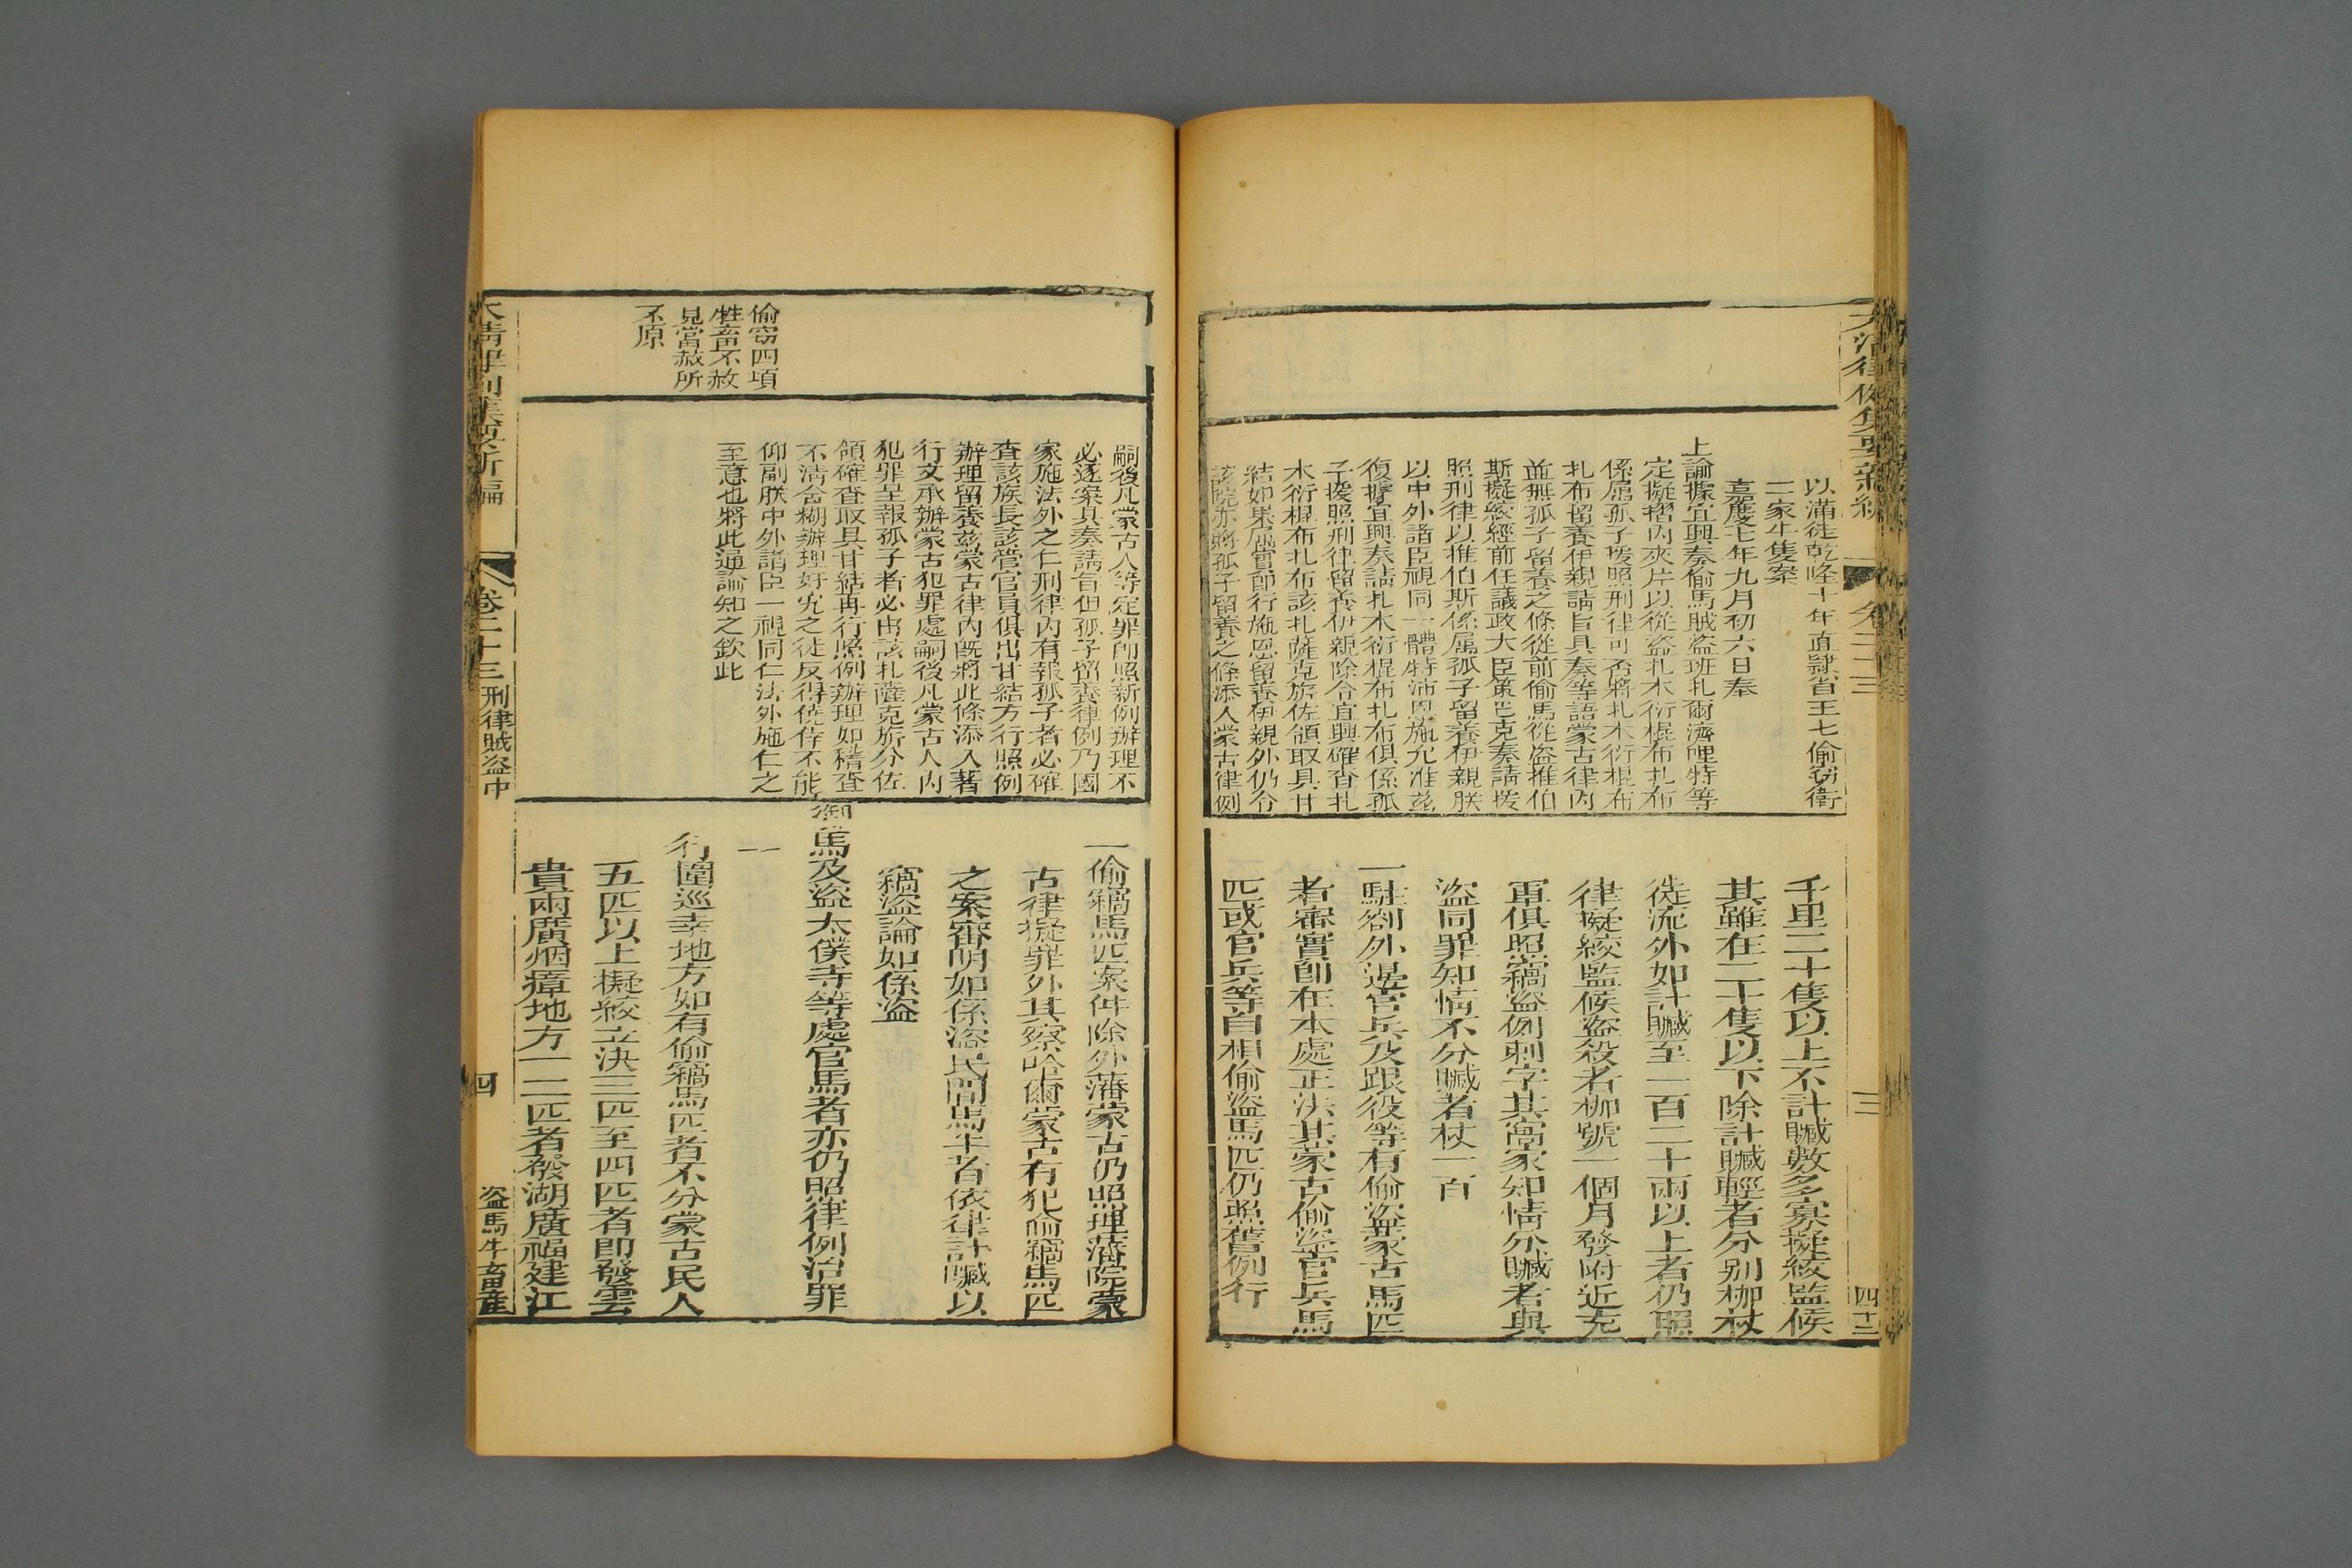 以滿徒乾隆十年直隸省王七偷窃衛
二家牛隻案
嘉慶七年九月初六日奉
上諭據宜興奏偷馬賊盜班扎爾濟哩特等
定擬摺內夾片以從盜扎木衍棍布扎布
係屬孤子援照刑律可否將扎木衍棍布
扎布留養伊親請旨具奏等語蒙古律內
並無孤子留養之條從前偷馬從盜推伯
斯擬絞經前任議政大臣策巴克奏請援
照刑律以推伯斯係屬孤子留養伊親朕
以中外諸臣視同一體特沛恩施允准茲
復據宜興奏請扎木衍棍布扎布俱係孤
子援照刑律留養伊親除令宜興確查扎
木衍棍布扎布該扎薩克旂佐領取具甘
結如果屬實即行施恩留養伊親外仍令
該院亦將孤子留養之條添入蒙古律例
千里二十隻以上不計贓數多寡擬絞監候
其雖在二十隻以下除計贓輕者分别枷杖
徒流外如計贓至一百二十兩以上者仍照
律擬絞監候盜殺者枷號一個月發附近充
軍俱照竊盜例刺字其窩家知情分贓者與
盜同罪知情不分贓者杖一百
一駐劄外邊官兵及跟役等有偷盜蒙古馬匹
者審實即在本處正法其蒙古偷盜官兵馬
匹或官兵等自相偷盜馬匹仍照舊例行
卷二十三
三
四十三
偷窃四項
牲畜不赦
見當赦所
不原
嗣後凡蒙古人等定罪即照新例辦理不
必逐案具奏請旨但孤子留養律例乃國
家施法外之仁刑律內有報孤子者必確
查該族長該管官員俱出甘結方行照例
辦理留養茲蒙古律內既將此條添入著
行文承辦蒙古犯罪處嗣後凡蒙古人內
犯罪呈報孤子者必由該扎薩克旂分佐
領確查取具甘結再行照例辦理如稽查
不清含糊辦理奸宄之徒反得僥倖不能
仰副朕中外諸臣一視同仁法外施仁之
至意也將此通諭知之欽此
一偷竊馬匹案件除外藩蒙古仍照理藩院蒙
古律擬罪外其察哈爾蒙古有犯偷竊馬匹
之案審明如係盜民間馬牛者依律計贓以
竊盜論如係盜
御馬及盜太僕寺等處官馬者亦仍照律例治罪
一
行圍巡幸地方如有偷竊馬匹者不分蒙古民人
五匹以上擬絞立決三匹至四匹者即發雲
貴兩廣烟瘴地方一二匹者發湖廣福建江
大清律例集要新編
卷二十三
刑律賊盜中
四
盜馬牛畜產